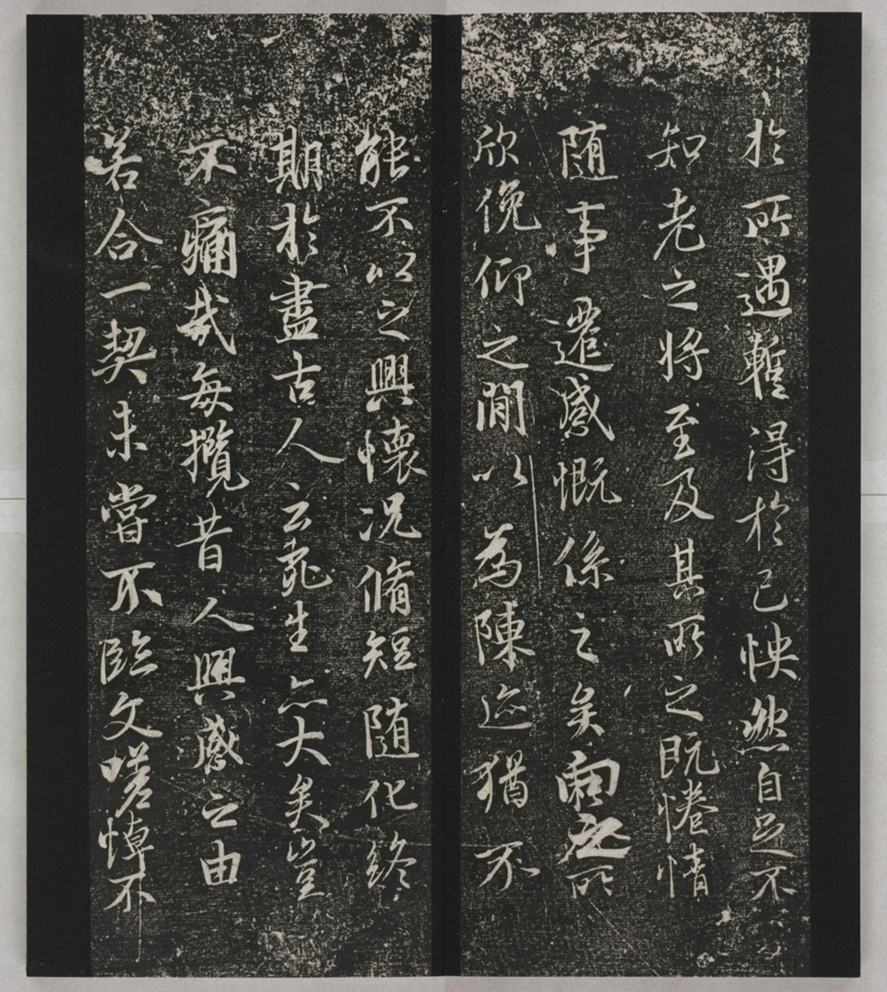 於所遇蹔得於己怏然自足不
知老之将至及其所之既惓情
随事遷感慨係之矣向之所
欣俛仰之閒以為陳迹猶不
能不以之興懷况脩短随化終
期於盡古人云死生亦大矣豈
不痛哉每攬昔人興感之由
若合一契未嘗不臨文嗟悼不